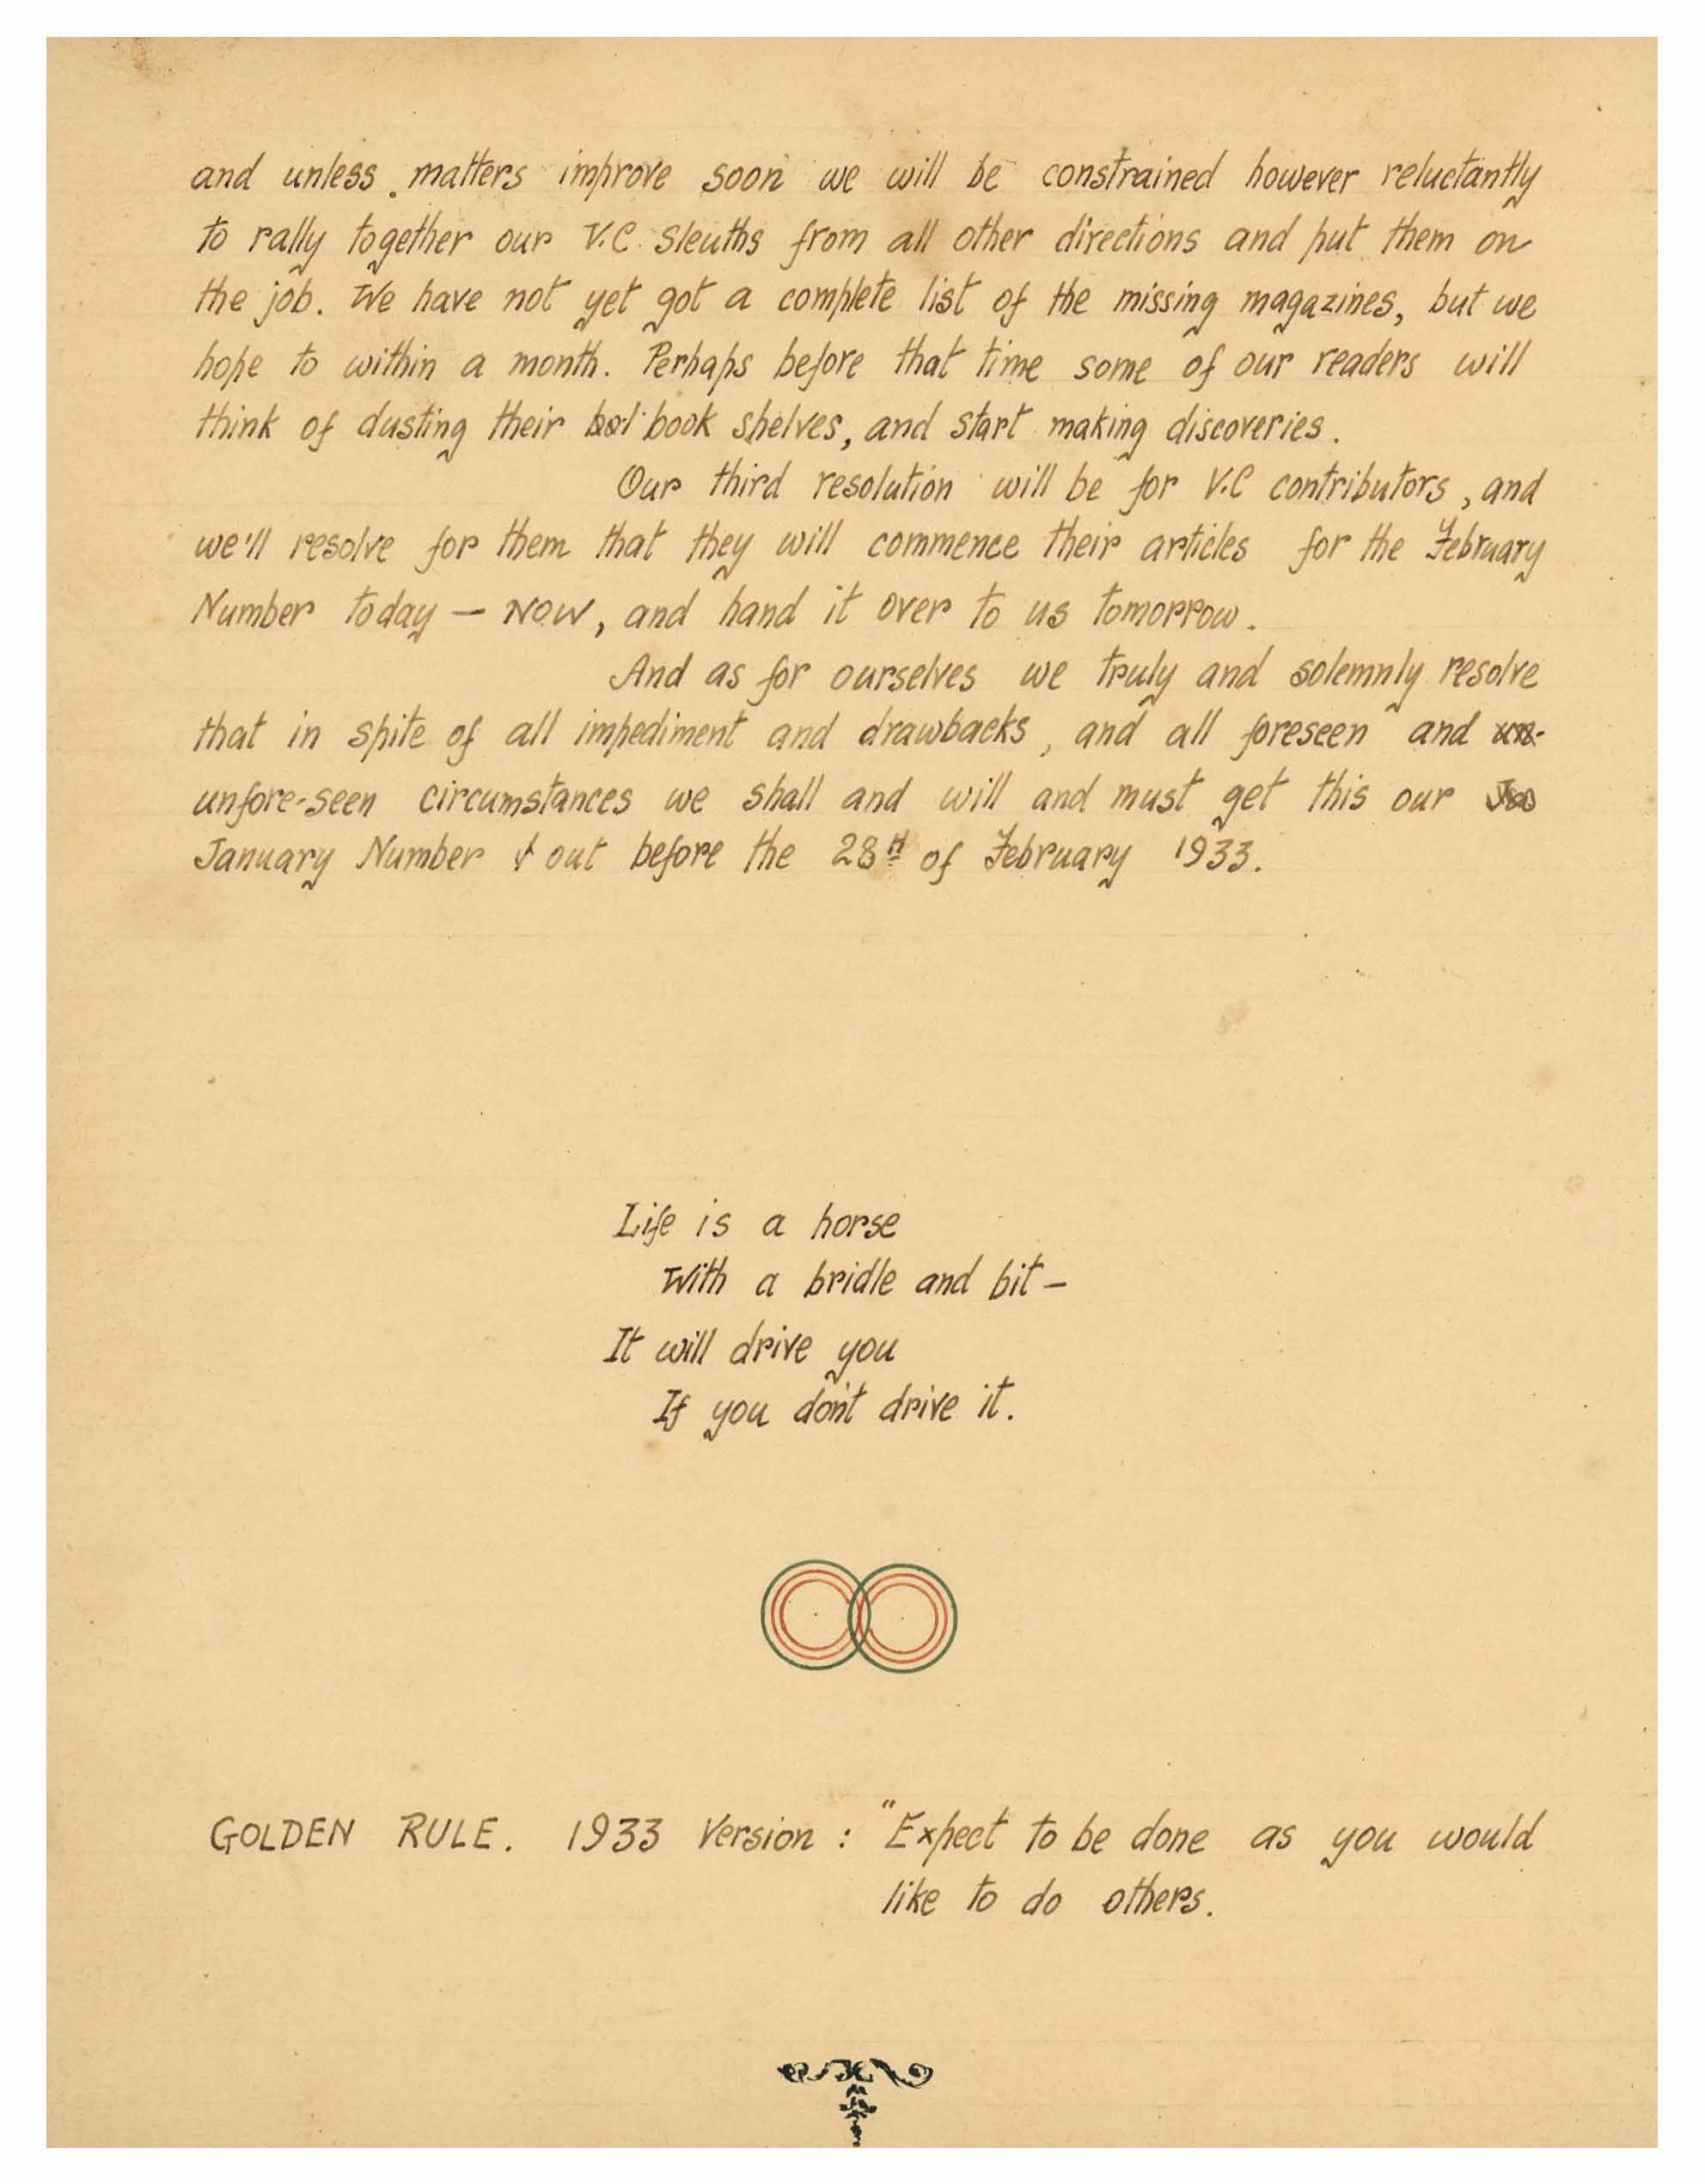 and unless matters improve soon we will be constrained however reluctantly
to rally together our V.C sleuths from all other directions and put them on
the job. We have not yet got a complete list of the missing magazines, but we
hope to within a month. Perhaps before that time some of our readers will
think of dusting their book shelves, and start making discoveries.
Our third resolution will be for V.C contributors, and
we'll resolve for them that they will commence their articles for the February
Number today — NOW, and hand it over to us tomorrow.
And as for ourselves we truly and solemnly resolve
that in spite of all impediment and drawbacks, and all foreseen and un-
unfore-seen circumstances we shall and will and must get this our
January Number out before the 28th of February 1933.
Life is a horse
With a bridle and bit —
It will drive you
If you don't drive it.
GOLDEN RULE. 1933 Version : "Expect to be done as you would
like to do others.